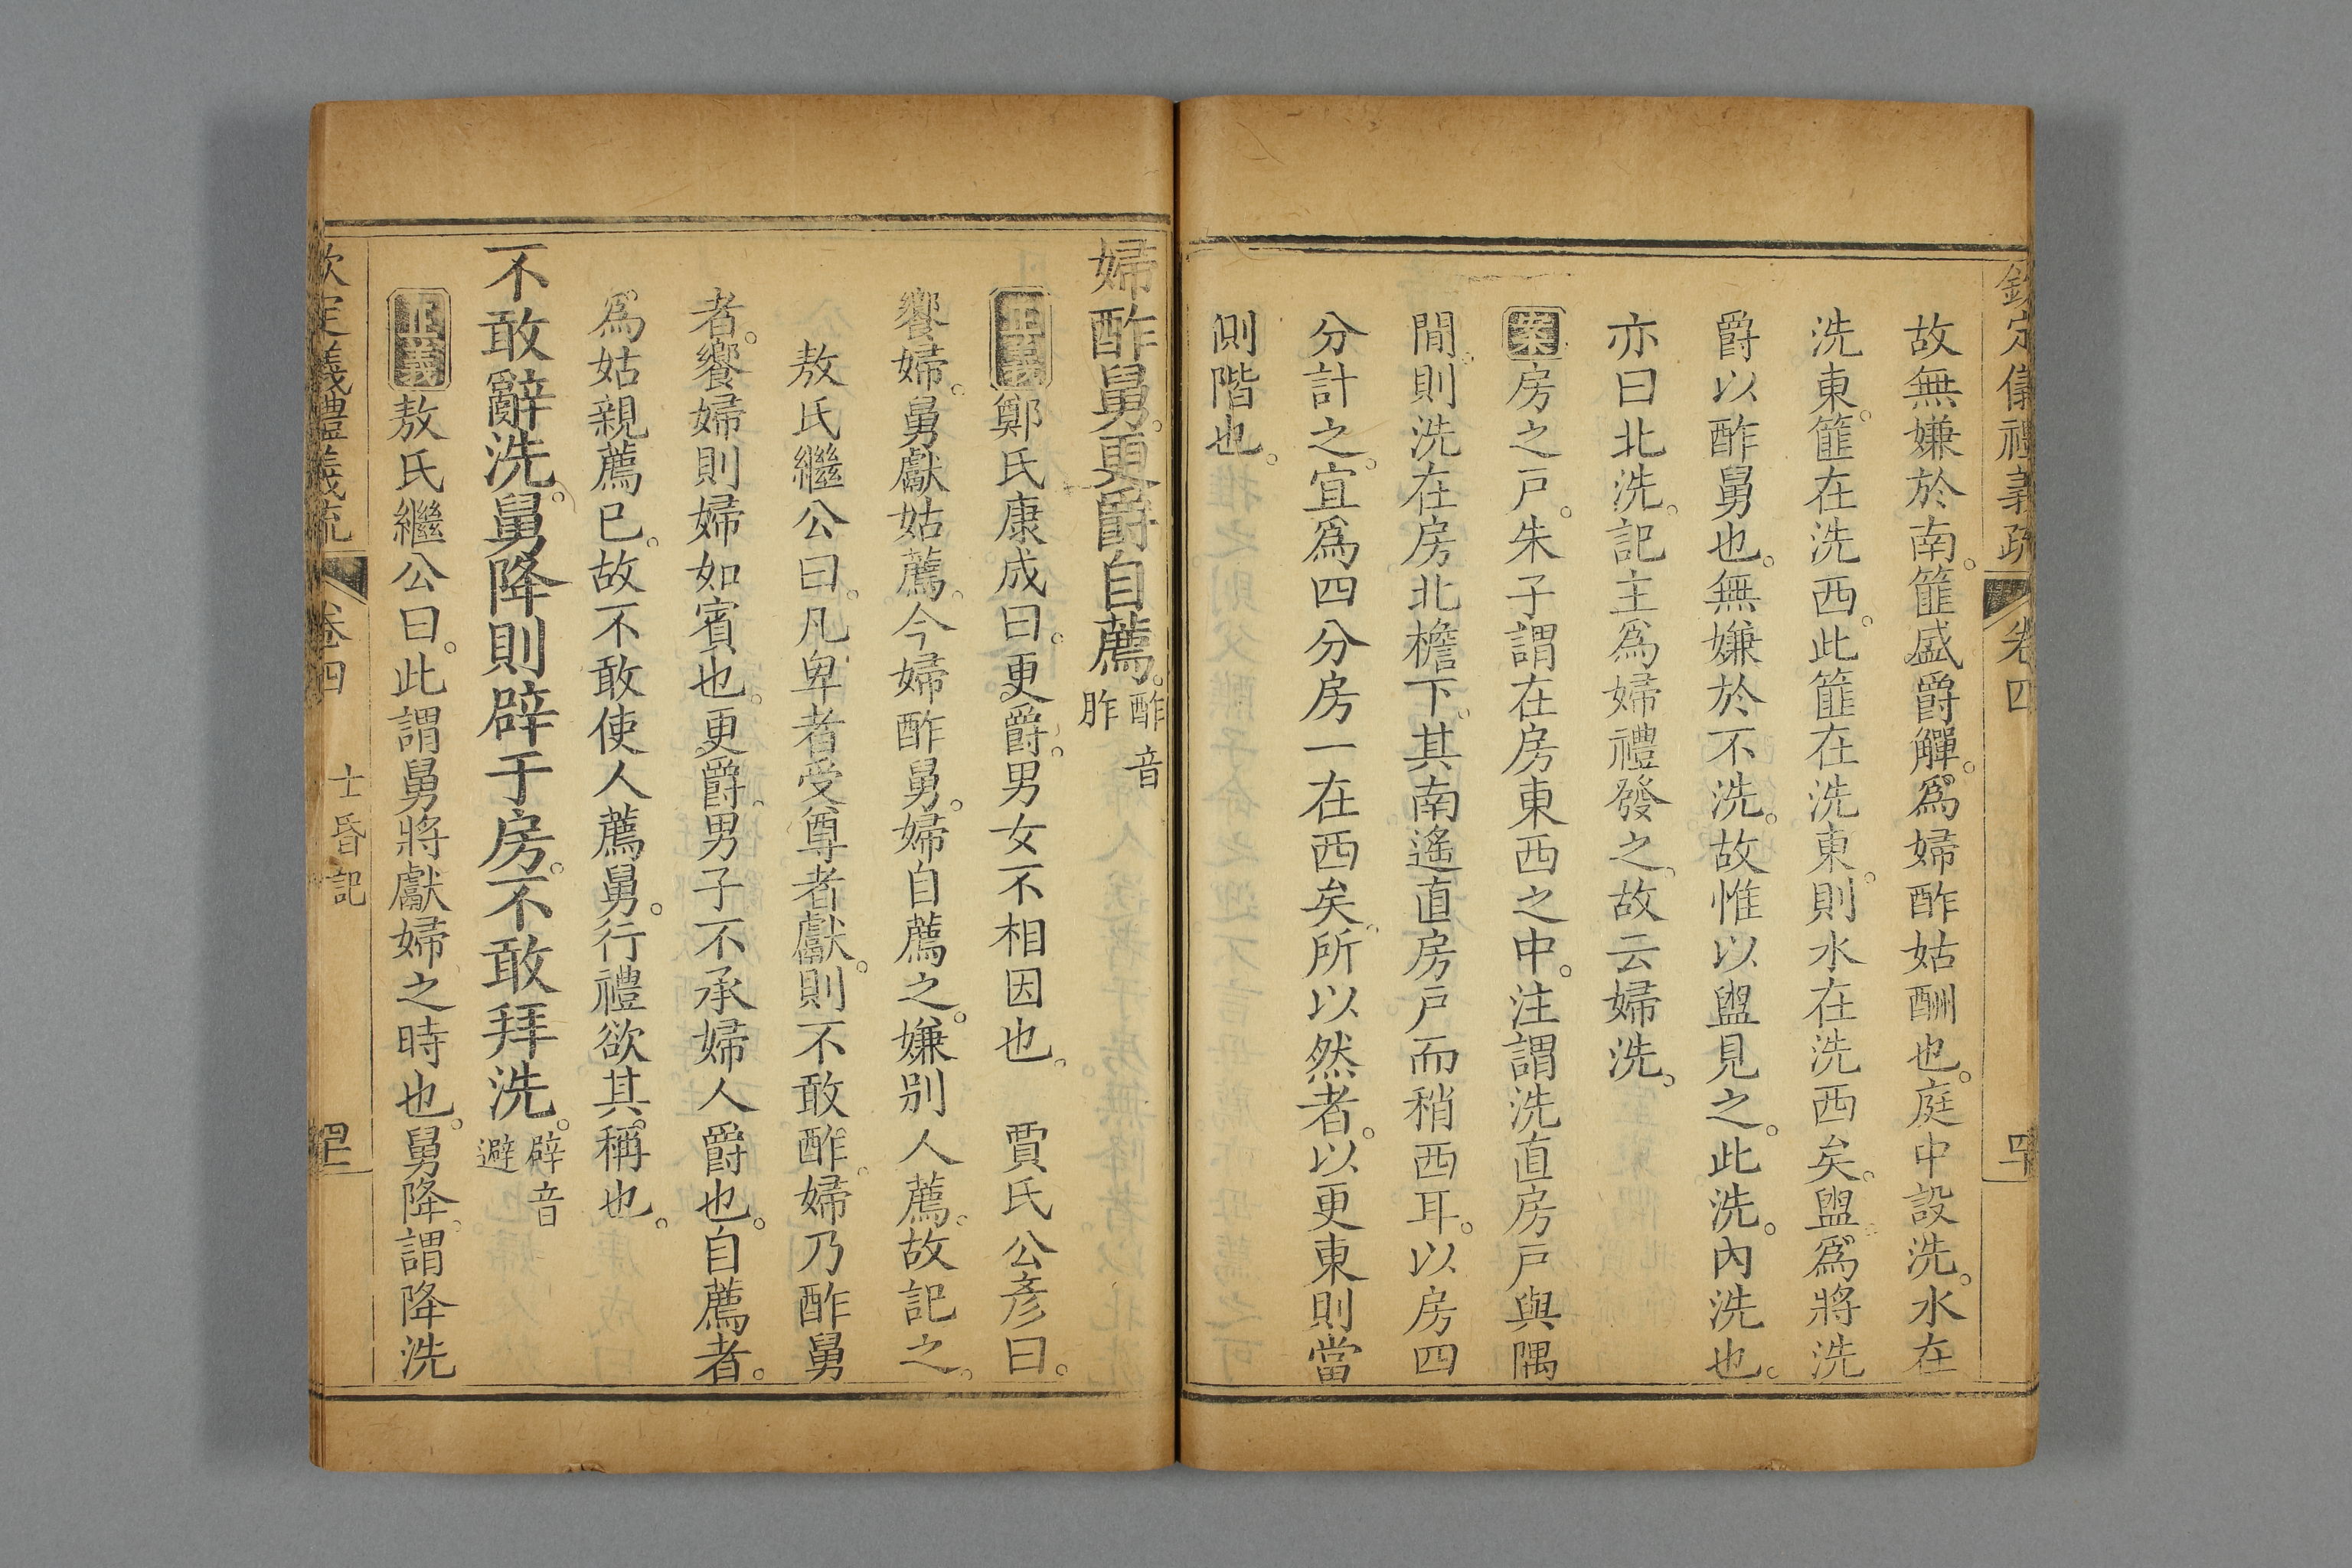 欽定儀禮義疏 卷四 四十
故無嫌於南。篚盛爵觶。爲婦酢姑酬也。庭中設洗。水在
洗東。篚在洗西。此篚在洗東。則水在洗西矣。盥爲將洗
爵以酢舅也。無嫌於不洗。故惟以盥見之。此洗。內洗也。
亦曰北洗。記主爲婦禮發之。故云婦洗。
案房之戶。朱子謂在房東西之中。注謂洗直房戶與隅
間。則洗在房北檐下。其南遙直房戶而稍西耳。以房四
分計之。宜爲四分房一在西矣。所以然者。以更東則當
側階也。
婦酢舅。更爵自薦。酢音胙
正義鄭氏康成曰。更爵。男女不相因也。 賈氏公彥曰。
饗婦。舅獻姑薦。今婦酢舅。婦自薦之。嫌別人薦。故記之。
敖氏繼公曰。凡卑者受尊者獻。則不敢酢。婦乃酢舅
者。饗婦則婦如賓也。更爵。男子不承婦人爵也。自薦者。
爲姑親薦已。故不敢使人薦舅。行禮欲其稱也。
不敢辭洗。舅降則辟于房。不敢拜洗。辟音避
正義敖氏繼公曰。此謂舅將獻婦之時也。舅降。謂降洗
欽定儀禮義疏 卷四 士昏記